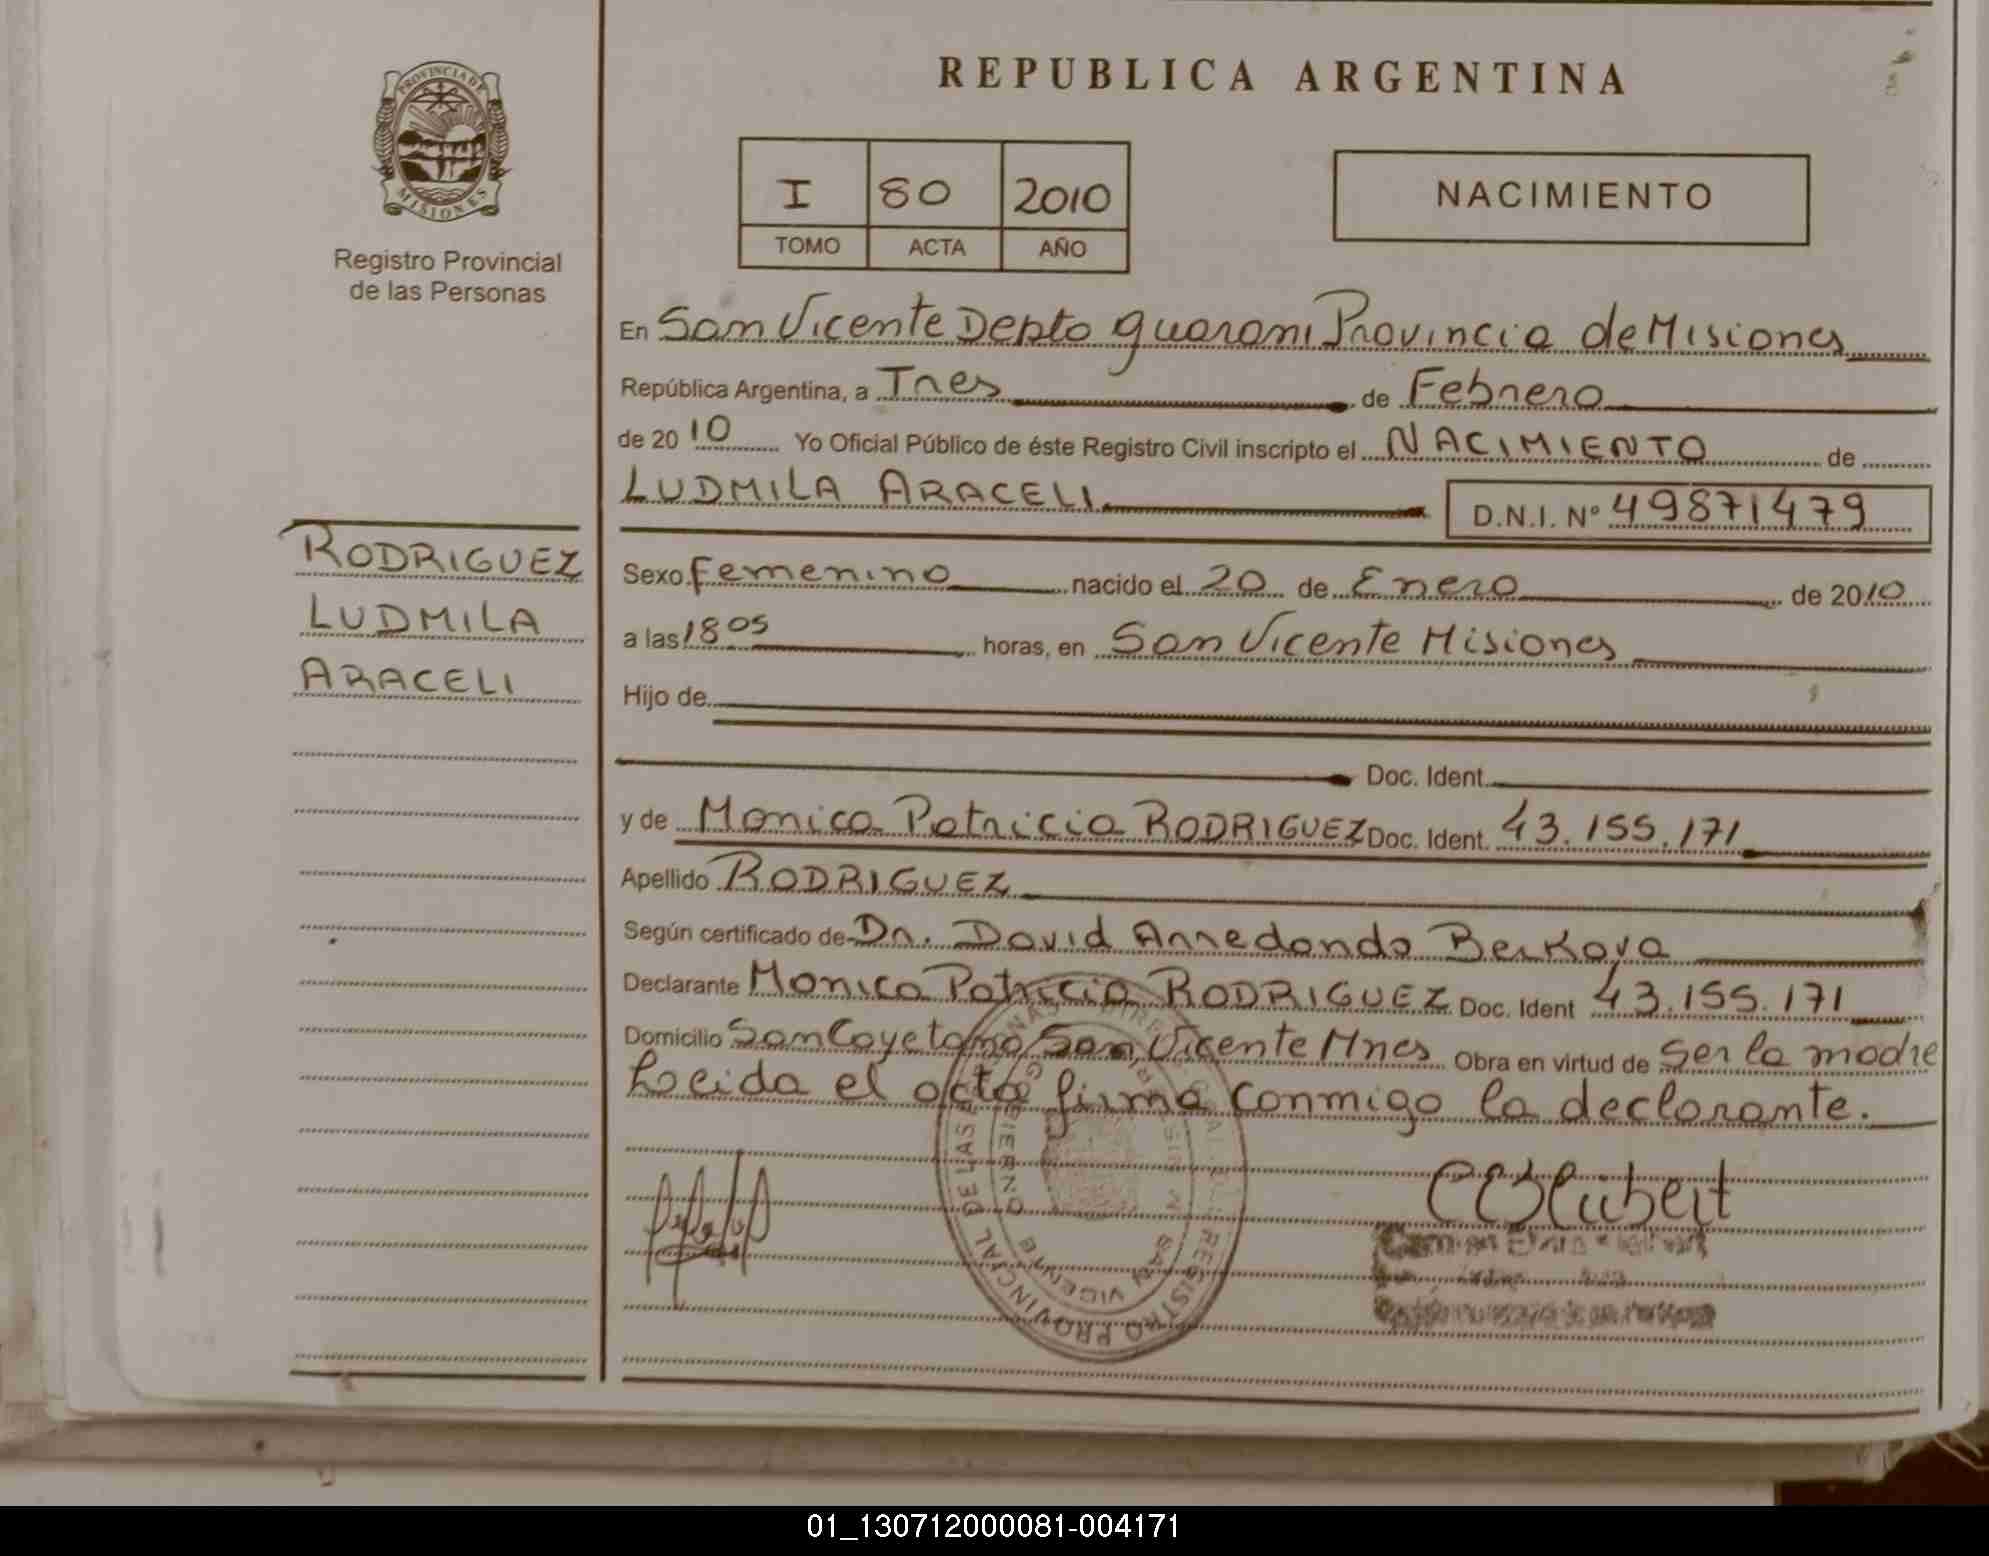 PROVINCIA DE
MISIONES
Registro Provincial
de las Personas
REPUBLICA ARGENTINA
I 80 2010
TOMO ACTA AÑO
NACIMIENTO
En San Vicente Depto Guarani Provincia de Misiones
República Argentina, a Tres de Febrero
de 20 10 Yo Oficial Público de éste Registro Civil inscripto el NACIMIENTO de
LUDMILA ARACELI
D.N.I. Nº 49871479
RODRIGUEZ
LUDMILA
ARACELI
Sexo Femenino nacido el 20 de Enero de 2010
a las 18 05 horas, en San Vicente Misiones
Hijo de
Doc. Ident.
y de Monica Patricia RODRIGUEZ Doc. Ident. 43.155.171
Apellido RODRIGUEZ
Según certificado de Dr. David Arredondo
Declarante Monica Patricia RODRIGUEZ Doc. Ident 43.155.171
Domicilio San Cayetano San Vicente Mnes Obra en virtud de ser la madre
Leida el acta firma conmigo la declarante.
REGISTRO PROVINCIAL DE LAS PERSONAS
SAN VICENTE
01_130712000081-004171